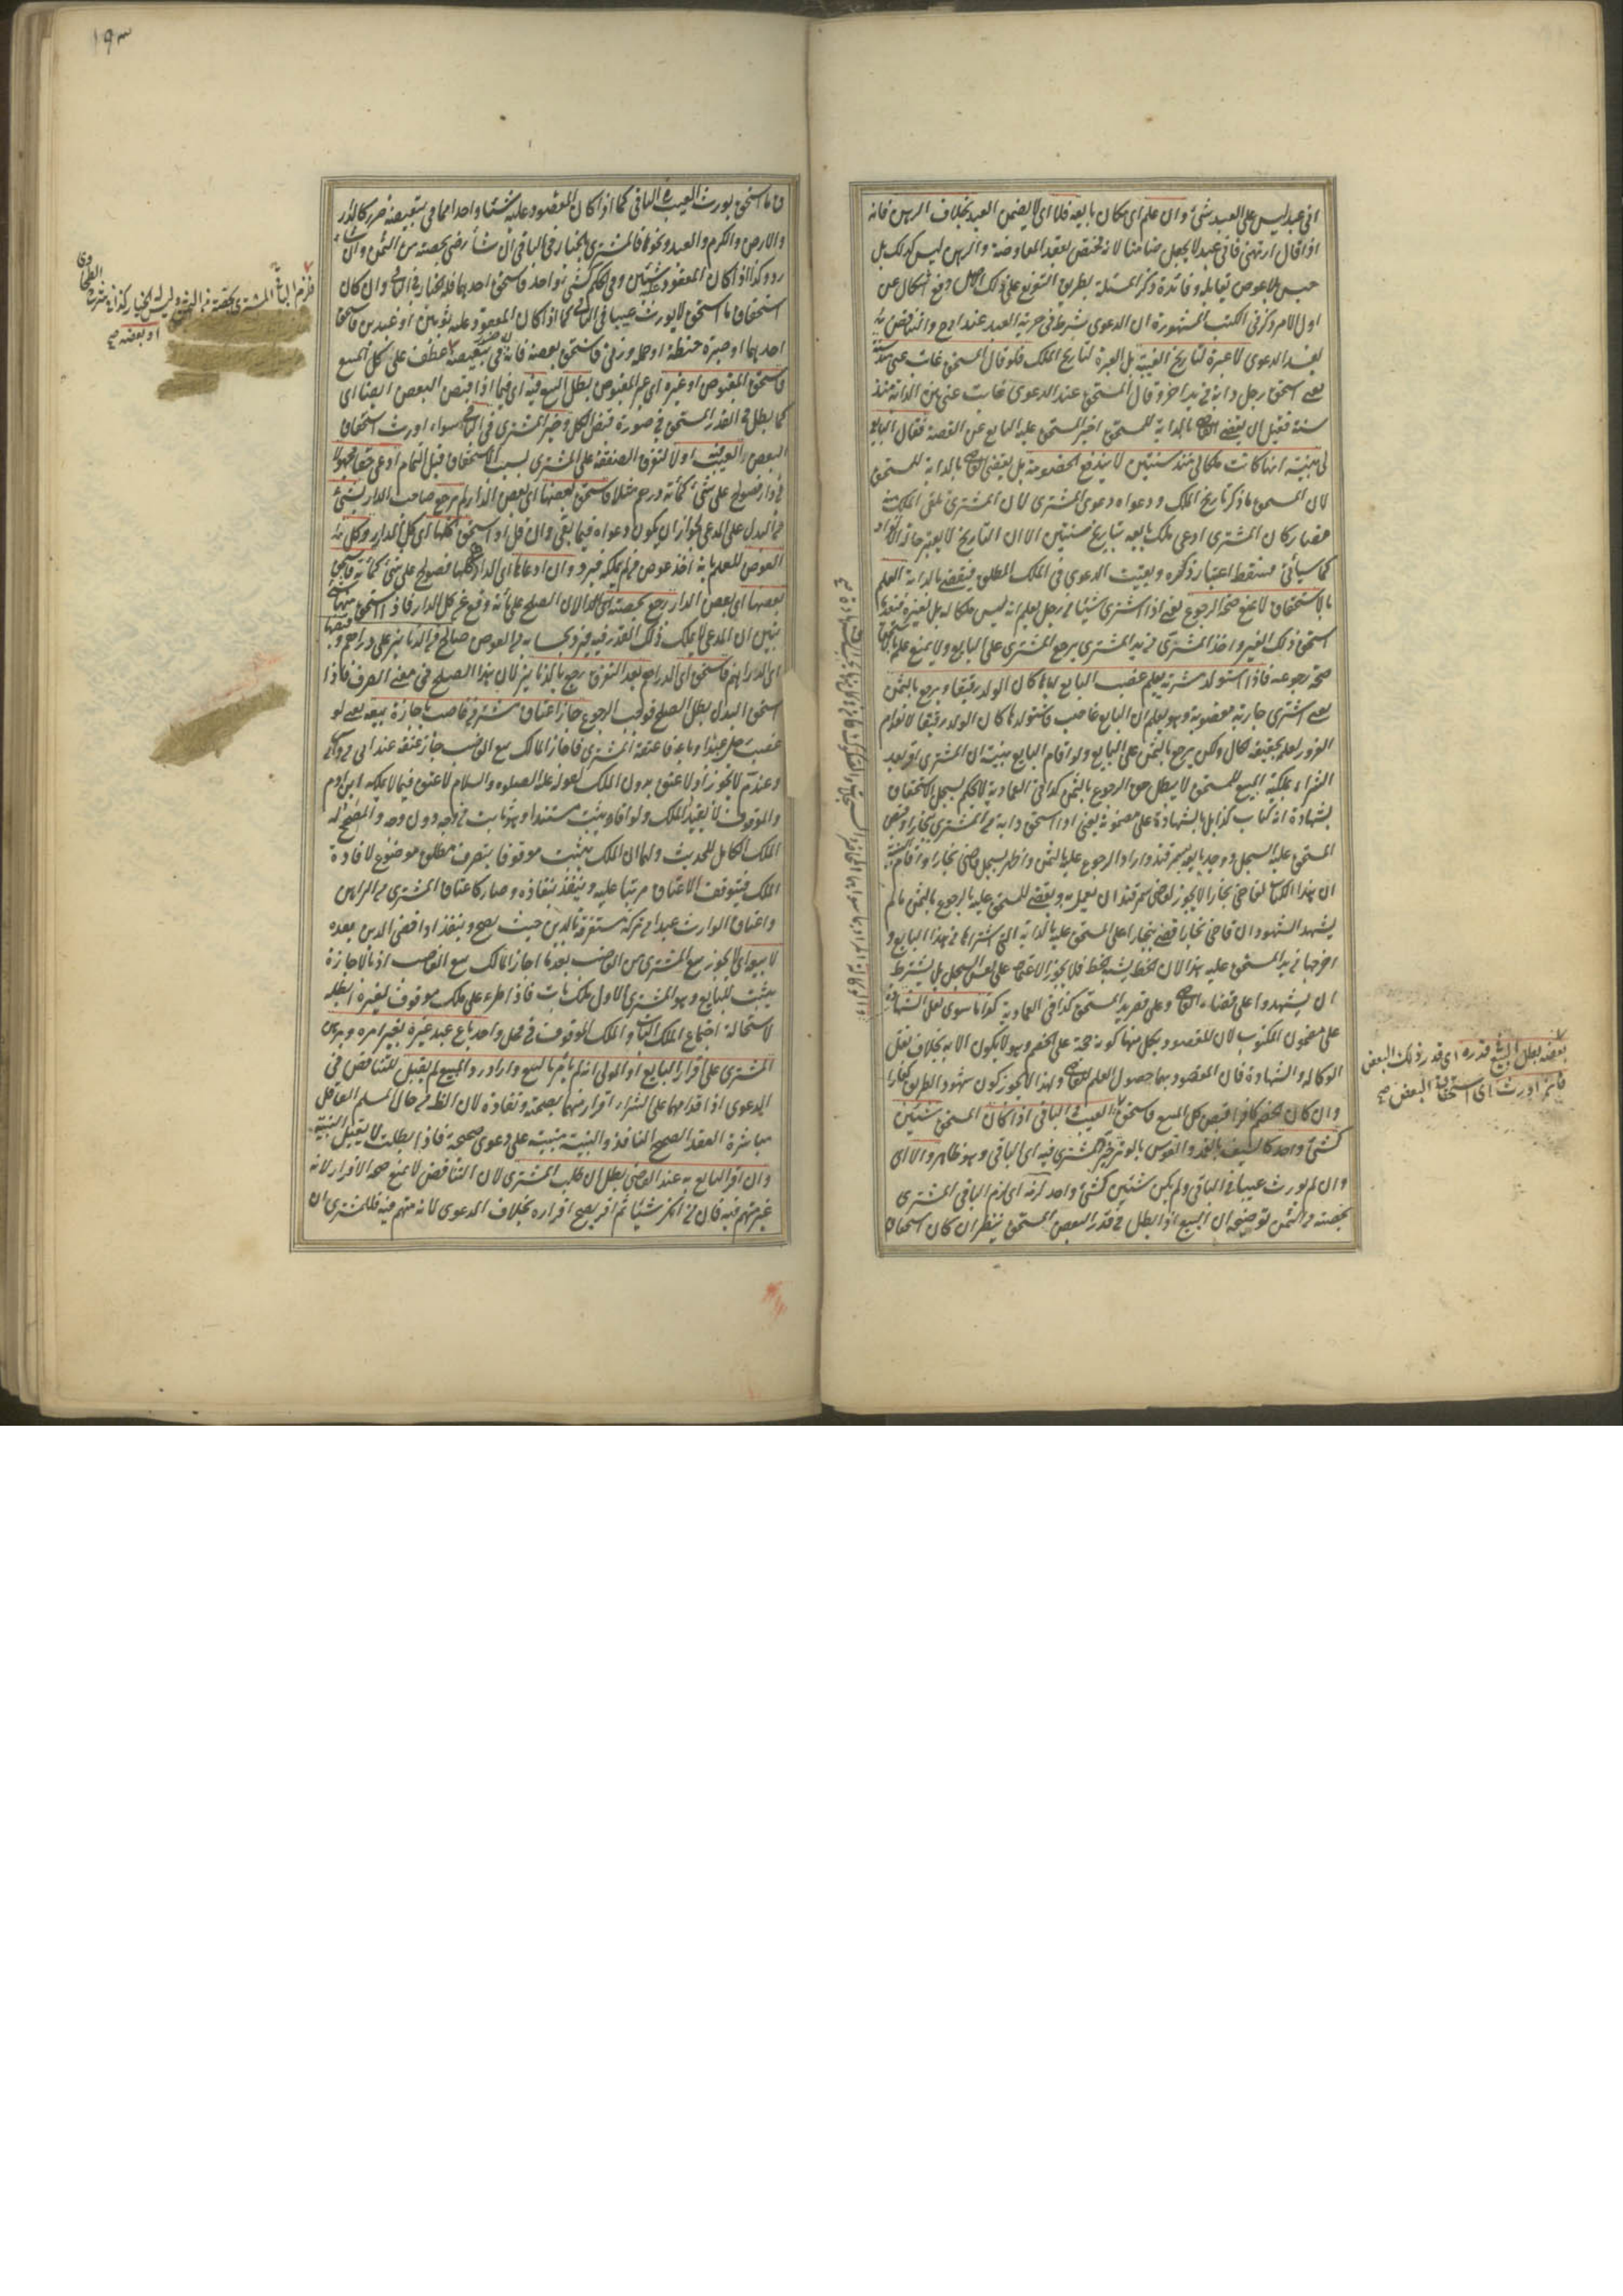 اني عبد ليس على العبد شئ وان علم اى مكان بايعه فلا اى لا يضمن العبد بخلاف الرهن فانه
اذا قال ارتهني فاني عبد لا يجعل ضامنا لانه يختص بعقد المعاوضة والرهن ليس كذلك بل
حبس بلا عوض يقابله وفائدة ذكر المسئلة بطريق التفريع على ذلك الاصل دفع اشكال عن
اول الامر وذكر في الكتب المشهورة ان الدعوى شرط في حرية العبد عند ابى ح والتناقض
يفسد الدعوى لا عبرة لتاريخ الغيبة بل العبرة لتاريخ الملك فلو قال المستحق غابت عني منذ سنة
يعني استحق رجل دابة في يد اخر وقال المستحق عند الدعوى غابت عني هذه الدابة منذ
سنة فقبل ان يقضي القاضي بالدابة للمستحق اخبر المستحق عليه البايع عن القصة فقال البايع
لي بينة انها كانت ملكا لي منذ سنتين لا يندفع الخصومة بل يقضي القاضي بالدابة للمستحق
لان المستحق ما ذكر تاريخ الملك ودعواه دعوى المشترى لان المشترى تلقى الملك منه
فصار كان المشترى ادعى ملك بايعه بتاريخ سنتين الا ان التاريخ لا يعتبر حالة الانفراد
كما سيأتي فسقط اعتبار ذكره وبقيت الدعوى في الملك المطلق فيقضي بالدابة العلم
بالاستحقاق لا يمنع صحة الرجوع يعني اذا اشترى شيئا من رجل يعلم انه ليس ملكا له بل لغيره فبعد ما
استحق ذلك الغير واخذ المشترى في يد المشترى يرجع المشترى على البايع ولا يمنع علمه
صحة رجوعه فاذا استولد مشترية يعلم غصب البايع اياها كان الولد رقيقا ويرجع بالثمن
يعني اشترى جارية مغصوبة وهو يعلم ان البايع غاصب فاستولدها كان الولد رقيقا لانعدام
الغرور لعلمه بحقيقة الحال ولكن يرجع بالثمن على البايع ولو اقام البايع بينة ان المشترى اقر بعد
الشراء بملكية المبيع للمستحق لا يبطل حق الرجوع بالثمن كذا في العمادية لا يحكم بسجل الاستحقاق
بشهادة انه كتاب كذا بل بالشهادة على مضمونه يعني اذا استحق دابة من المشترى ببخارا وقبض
المستحق عليه السجل ووجد بايعه بسمرقند واراد الرجوع عليه بالثمن واظهر سجل قاضي بخارا واقام البينة
ان هذا الكتاب لقاضي بخارا لا يجوز لقاضي سمرقند ان يعمل به ويقضي للمستحق عليه بالرجوع بالثمن ما لم
يشهد الشهود ان قاضي بخارا قضى ببخارا على المستحق عليه بالدابة التي اشتراها من هذا البايع و
اخرجها من يد المستحق عليه هذا لان الخط يشبه الخط فلا يجوز الاعتماد على نفس السجل بل يشترط
ان يشهدوا على قضاء القاضي وعلى قصر يد المستحق كذا في العمادية كذا ما سوى نقل الشهادة
على مضمون المكتوب لان المقصود بكل منهما كونه حجة على الخصم وهو لا يكون الا به بخلاف نقل
الوكالة والشهادة فان المقصود بهما حصول العلم للقاضي ولهذا لا يجوز كون شهود الطريق كفارا
وان كان الخصم كافرا قبض كل المبيع فاستحق العيب الباقي اذا كان المستحق شيئين
كشئ واحد كالسيف بالغمد والقوس بالوتر خير المشترى فيه اى الباقي وهو ظاهر والا اى
وان لم يورث عيبا في الباقي ولم يكن شيئين كشئ واحد لزمه اى لزم الباقي المشترى
بحصته من الثمن توضيحه ان البيع اذا بطل في قدر البعض المستحق ينظر ان كان استحقاق
بعضه بطل البيع في قدره اى قدر ذلك البعض
فان اورث اى استحقاق البعض صح
١٩٣
ق ما استحق يورث العيب في الباقي كما اذا كان المعقود عليه شيئا واحدا مما في تبعيضه ضرر كالدار
والارض والكرم والعبد ونحوها فالمشترى بالخيار في الباقي ان شاء رضي بحصته من الثمن وان شاء
رد وكذا اذا كان المعقود عليه شيئين وفي الحكم كشئ واحد فاستحق احدهما فله الخيار في الباقي وان كان
استحقاق ما استحق لا يورث عيبا في الباقي كما اذا كان المعقود عليه ثوبين او عبدين فاستحق
احدهما او صبرة حنطة او جملة وزني فاستحق بعضه فانه لا ضرر في تبعيضه عطف على كل المبيع
فاستحق المقبوض او غيره اى غير المقبوض بطل البيع فيه اى فيما اذا قبض البعض ايضا اى
كما بطل في القدر المستحق في صورة قبض الكل وخير المشترى في الباقي سواء اورث استحقاق
البعض العيب فيه اولا لتفرق الصفقة على المشترى بسبب الاستحقاق قبل التمام ادعى حقا مجهولا
في دار فصولح على شئ كمائة درهم مثلا فاستحق بعضها اى بعض الدار لم يرجع صاحب الدار بشئ
من البدل على المدعى لجواز ان يكون دعواه فيما بقى وان قل او استحق كلها اى كل الدار رد كل
العوض للعلم بانه اخذ عوض ما لم يملكه فيرد وان ادعاها اى الدار كلها فصولح على شئ كمائة فاستحق
بعضها اى بعض الدار رجع بحصته اى البدل لان الصلح على مائة وقع عن كل الدار فاذا استحق منها شئ
تبين ان المدعى لا يملك ذلك القدر فيه فيرد بحسابه من العوض صالح من الدنانير على دراهم وقبضها
اى الدراهم فاستحق اى الدراهم بعد التفرق رجع بالدنانير لان هذا الصلح في معنى الصرف فاذا
استحق البدل بطل الصلح فوجب الرجوع جاز اعتاق مشتر من غاصب باجازة بيعه يعني لو
غصب رجل عبدا وباعه فاعتقه المشترى فاجاز المالك بيع الغاصب جاز عتقه عند ابى ح
وعند م لا يجوز اذ لا عتق بدون الملك لقوله عليه الصلوة والسلام لا عتق فيما لا يملكه ابن ادم
والموقوف لا يفيد الملك ولو افاد يثبت مستندا وهو ثابت من وجه دون وجه والمصحح له
الملك الكامل للحديث ولهما ان الملك يثبت موقوفا بتصرف مطلق موضوع لافادة
الملك فيتوقف الاعتاق مرتبا عليه وينفذ بنفاذه وصار كاعتاق المشترى من الراهن
واعتاق الوارث عبدا من تركة مستغرقة بالدين حيث يصح وينفذ اذا قضى الدين بعده
لا بيعه اى لا يجوز بيع المشترى من الغاصب بعد ما اجاز المالك بيع الغاصب اذ بالاجازة
يثبت للبايع وهو المشترى الاول ملك بات فاذا طرء على ملك موقوف لغيره ابطله
لاستحالة اجتماع الملك البات والملك الموقوف في محل واحد باع عبد غيره بغير امره وبرهن
المشترى على اقرار البايع او المولى انه لم يأمر بالبيع واراد رد المبيع لم يقبل للتناقض في
الدعوى اذ اقدامهما على الشراء اقرار منهما بصحته ونفاذه لان الظ من حال المسلم العاقل
مباشرة العقد الصحيح النافذ والبينة مبنية على دعوى صحيحة فاذا بطلت لا يقبل البينة
وان اقر البايع به عند القاضي بطل ان طلب المشترى لان التناقض لا يمنع صحة الاقرار لانه
غير متهم فيه فان من انكر شيئا ثم اقر يصح اقراره بخلاف الدعوى لانه متهم فيه فللمشترى ان
فلزم الباقي المشترى بحصته من الثمن وليس له الخيار كذا في شرح الطحاوى
او بعضه صح